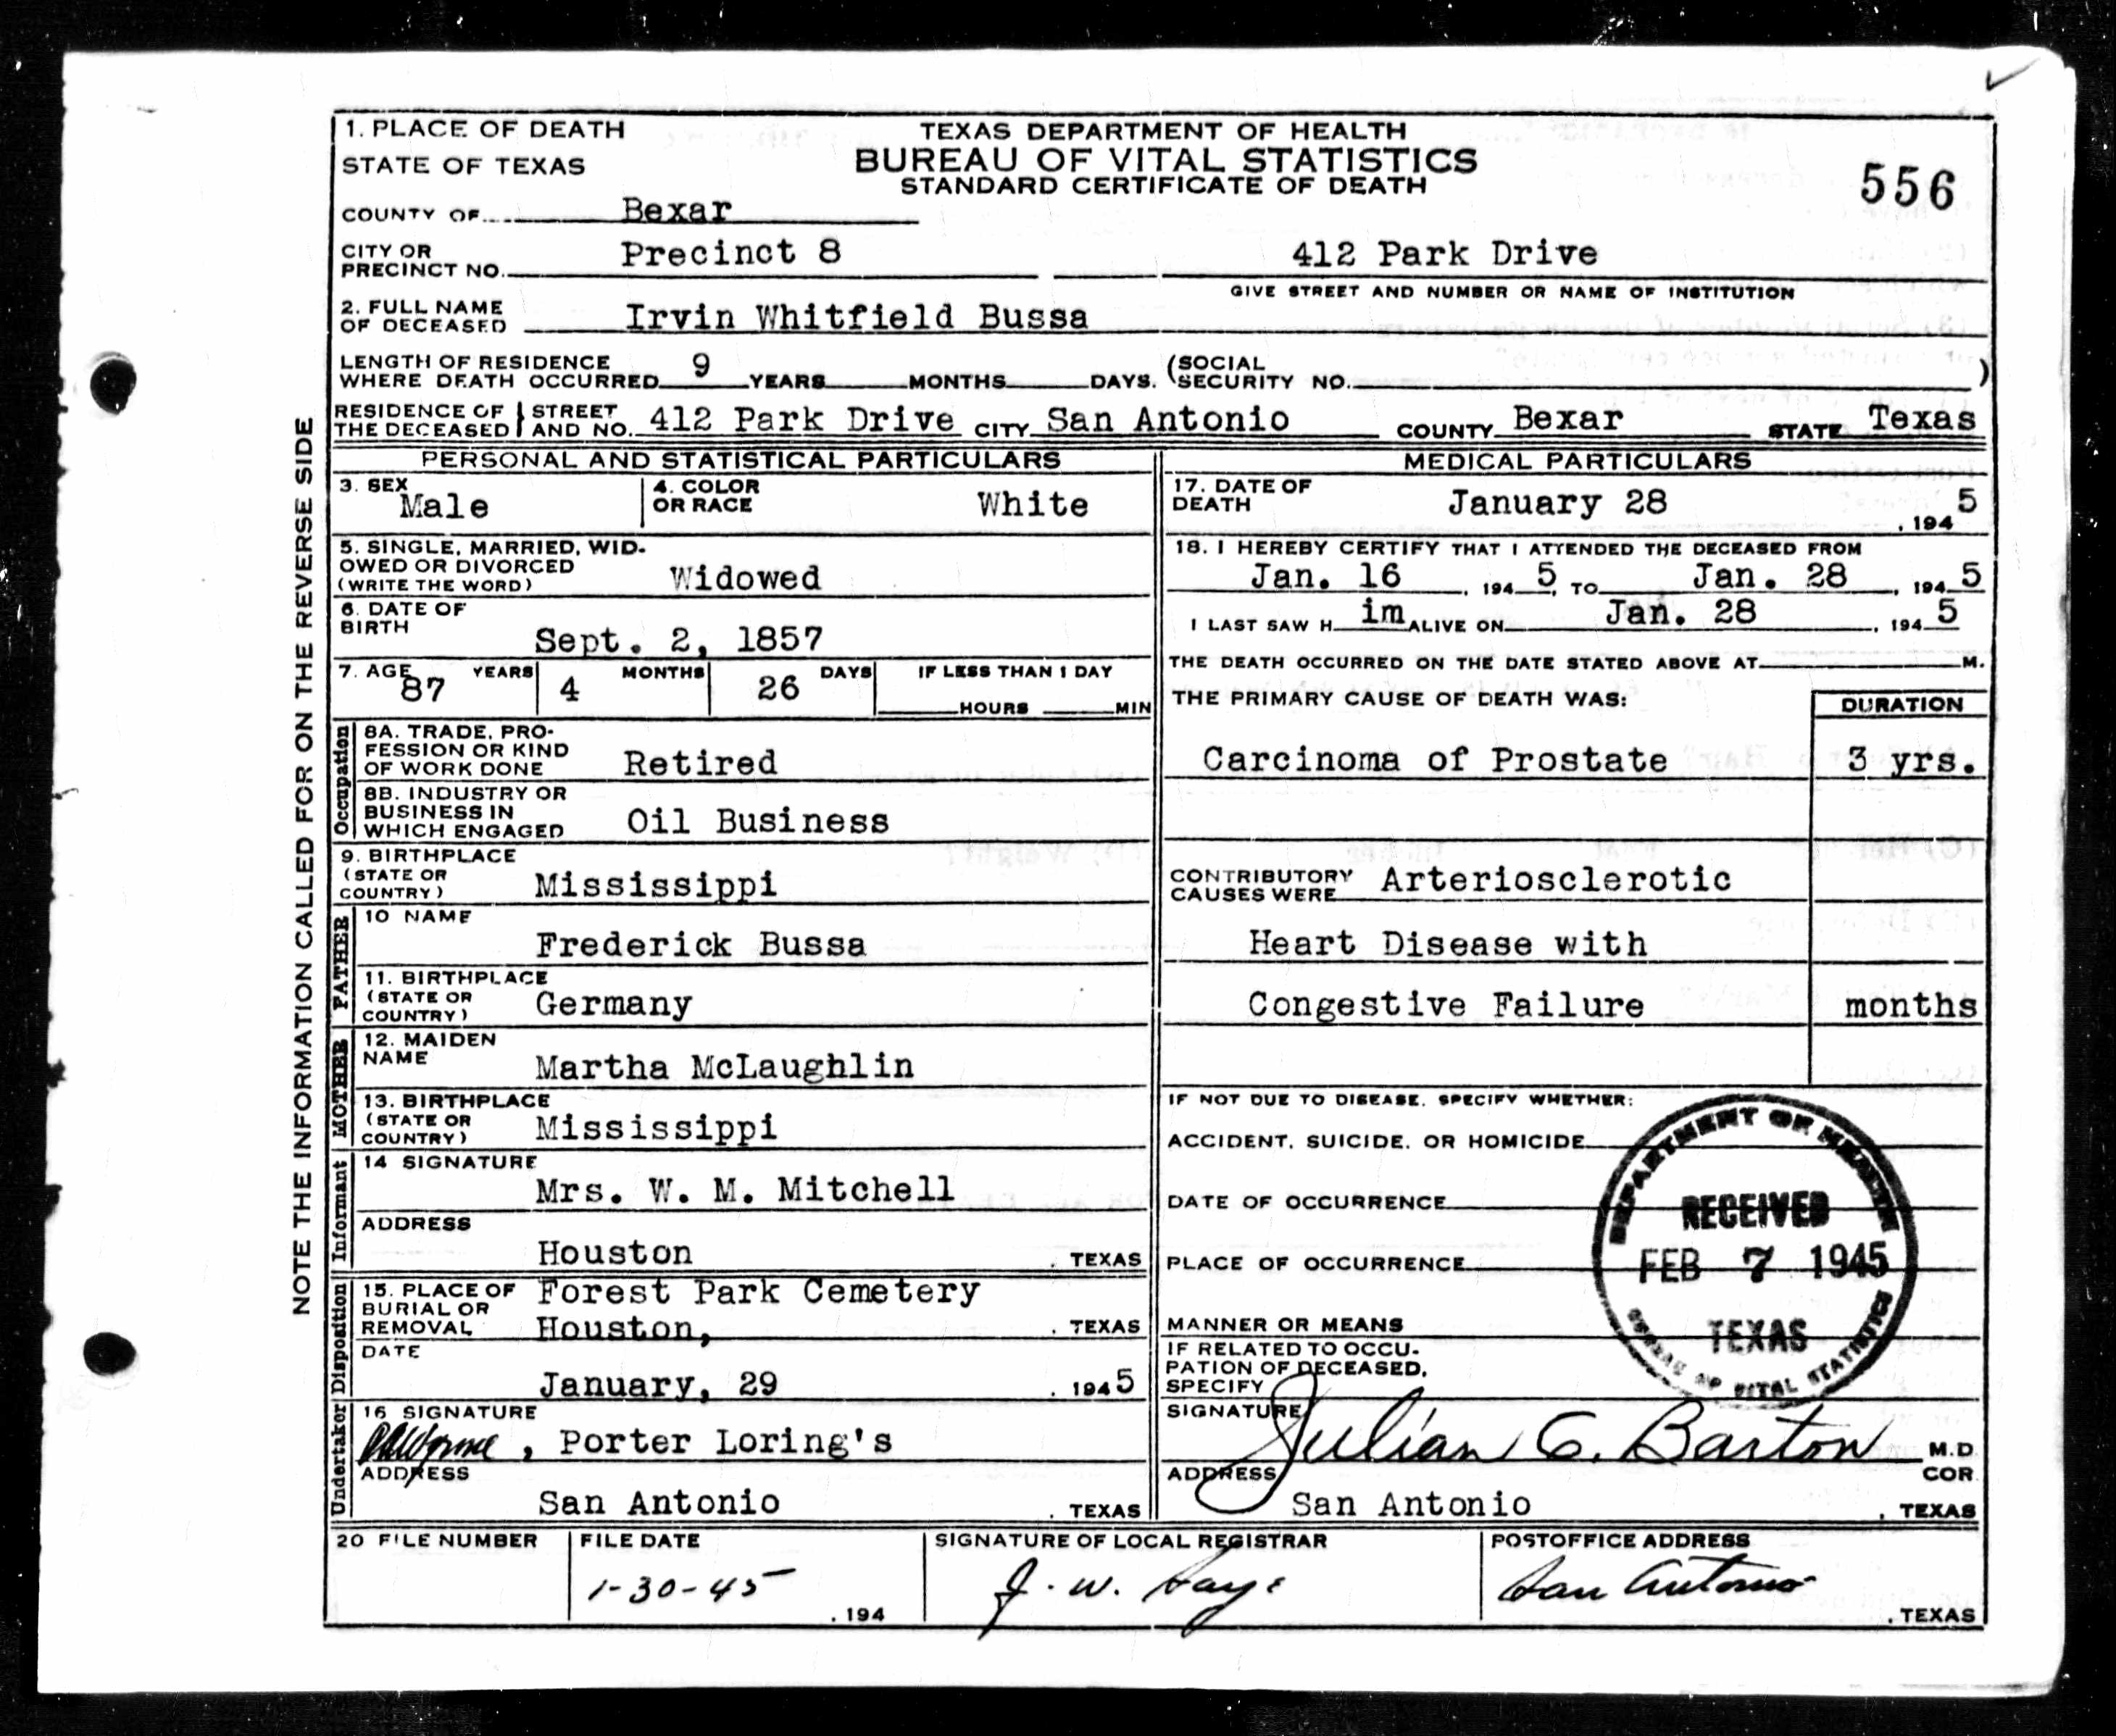 1. PLACE OF DEATH
STATE OF TEXAS
TEXAS DEPARTMENT OF HEALTH
BUREAU OF VITAL STATISTICS
STANDARD CERTIFICATE OF DEATH
556
COUNTY OF Bexar
CITY OR PRECINCT NO. Precinct 8 412 Park Drive
GIVE STREET AND NUMBER OR NAME OF INSTITUTION
2. FULL NAME OF DECEASED Irvin Whitfield Bussa
LENGTH OF RESIDENCE WHERE DEATH OCCURRED 9 YEARS MONTHS DAYS. (SOCIAL SECURITY NO. )
RESIDENCE OF THE DECEASED STREET AND NO. 412 Park Drive CITY San Antonio COUNTY Bexar STATE Texas
NOTE THE INFORMATION CALLED FOR ON THE REVERSE SIDE
PERSONAL AND STATISTICAL PARTICULARS
3. SEX Male 4. COLOR OR RACE White
5. SINGLE, MARRIED, WIDOWED OR DIVORCED (WRITE THE WORD) Widowed
6. DATE OF BIRTH Sept. 2, 1857
7. AGE 87 YEARS 4 MONTHS 26 DAYS IF LESS THAN 1 DAY
HOURS MIN
Occupation
8A. TRADE, PROFESSION OR KIND OF WORK DONE Retired
8B. INDUSTRY OR BUSINESS IN WHICH ENGAGED Oil Business
9. BIRTHPLACE (STATE OR COUNTRY) Mississippi
FATHER
10 NAME Frederick Bussa
11. BIRTHPLACE (STATE OR COUNTRY) Germany
MOTHER
12. MAIDEN NAME Martha McLaughlin
13. BIRTHPLACE (STATE OR COUNTRY) Mississippi
Informant
14 SIGNATURE Mrs. W. M. Mitchell
ADDRESS Houston, TEXAS
Disposition
15. PLACE OF BURIAL OR REMOVAL Forest Park Cemetery
Houston, , TEXAS
DATE January, 29 , 1945
Undertaker
16 SIGNATURE , Porter Loring's
ADDRESS San Antonio , TEXAS
MEDICAL PARTICULARS
17. DATE OF DEATH January 28 , 1945
18. I HEREBY CERTIFY THAT I ATTENDED THE DECEASED FROM
Jan. 16 , 1945, TO Jan. 28 , 1945
I LAST SAW Him ALIVE ON Jan. 28 , 1945
THE DEATH OCCURRED ON THE DATE STATED ABOVE AT M.
THE PRIMARY CAUSE OF DEATH WAS: DURATION
Carcinoma of Prostate 3 yrs.
CONTRIBUTORY CAUSES WERE Arteriosclerotic
Heart Disease with
Congestive Failure months
IF NOT DUE TO DISEASE, SPECIFY WHETHER:
ACCIDENT, SUICIDE, OR HOMICIDE
DATE OF OCCURRENCE
PLACE OF OCCURRENCE
MANNER OR MEANS
IF RELATED TO OCCUPATION OF DECEASED, SPECIFY
DEPARTMENT OF HEALTH
RECEIVED
FEB 7 1945
TEXAS
BUREAU OF VITAL STATISTICS
SIGNATURE Julian C. Barton M.D.
COR.
ADDRESS San Antonio , TEXAS
20 FILE NUMBER FILE DATE SIGNATURE OF LOCAL REGISTRAR POSTOFFICE ADDRESS
1-30-45 , 194 J. W. San Antonio , TEXAS